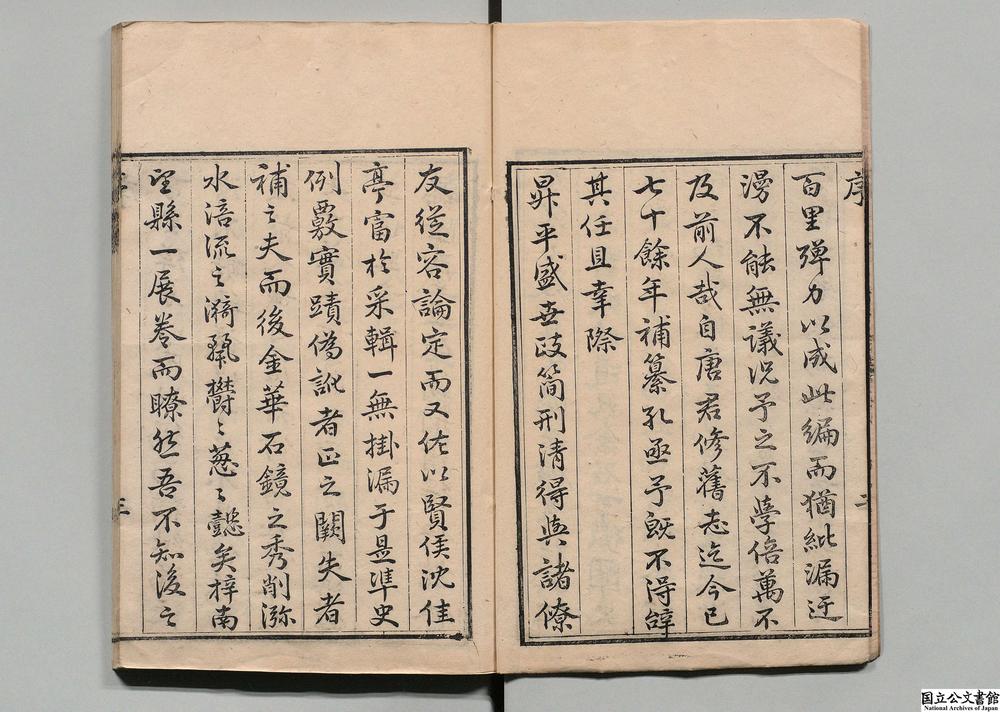 序
二
百里殫力以成此編而猶紕漏迂
漫不能無議況予之不學倍萬不
及前人哉自唐君修舊志迄今已
七十餘年補纂孔亟予既不得辭
其任且幸際
昇平盛世政簡刑清得與諸僚
友從容論定而又佐以賢侯沈佳
亭富於采輯一無掛漏于是準史
例覈實蹟偽訛者正之闕失者
補之夫而後金華石鏡之秀削瀰
水涪流之漪
欝〻蔥〻懿矣梓南
望縣一展卷而瞭然吾不知後之
三
国立公文書館
National Archives of Japan